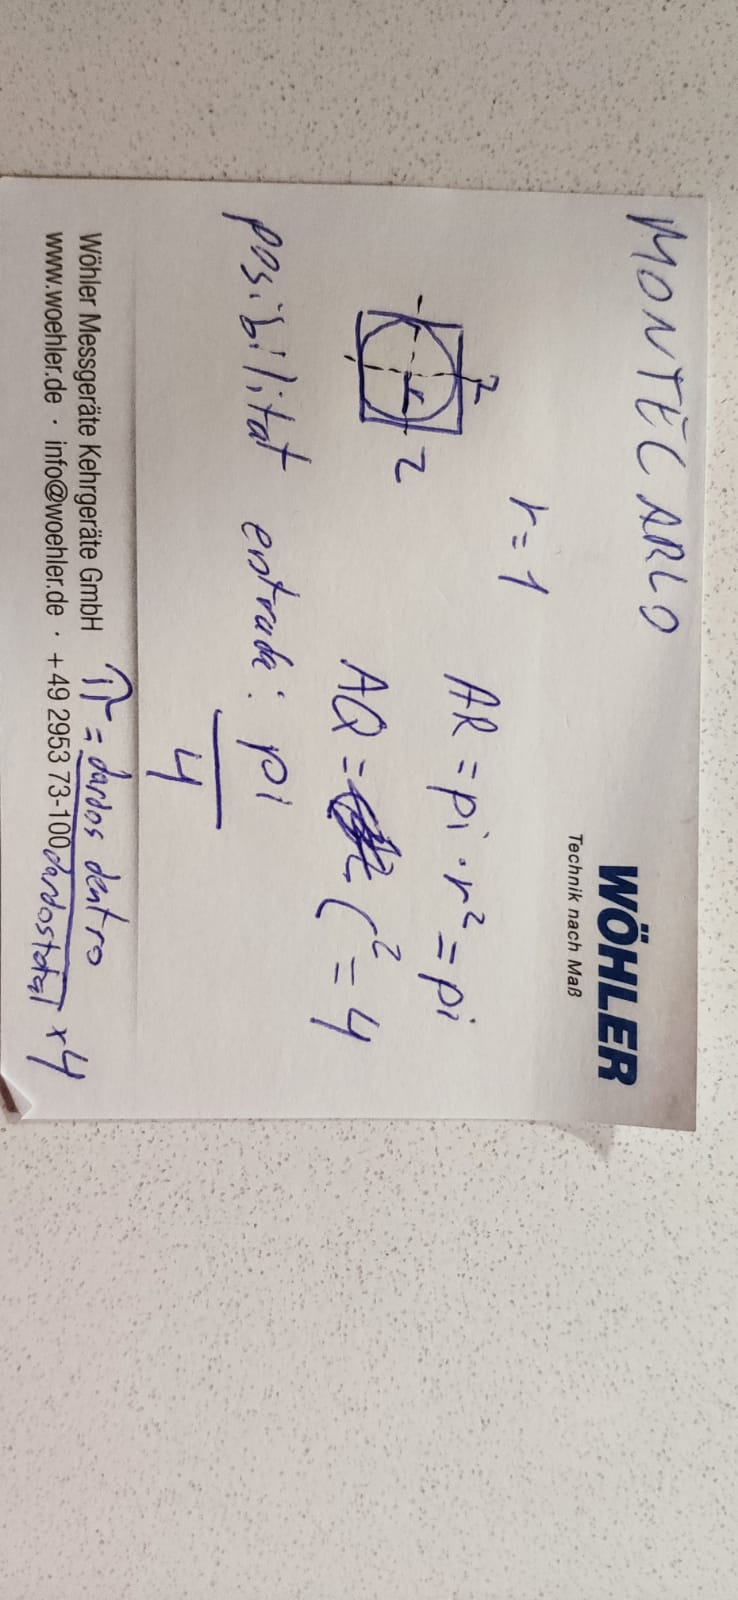 MONTECARLO
WÖHLER
Technik nach Maß
r=1
2
2
r
AR = pi · r² = pi
AQ = l² = 4
posibilitat entrada: pi
4
π = dardos dentro
dardos total x4
Wöhler Messgeräte Kehrgeräte GmbH
www.woehler.de · info@woehler.de · +49 2953 73-100